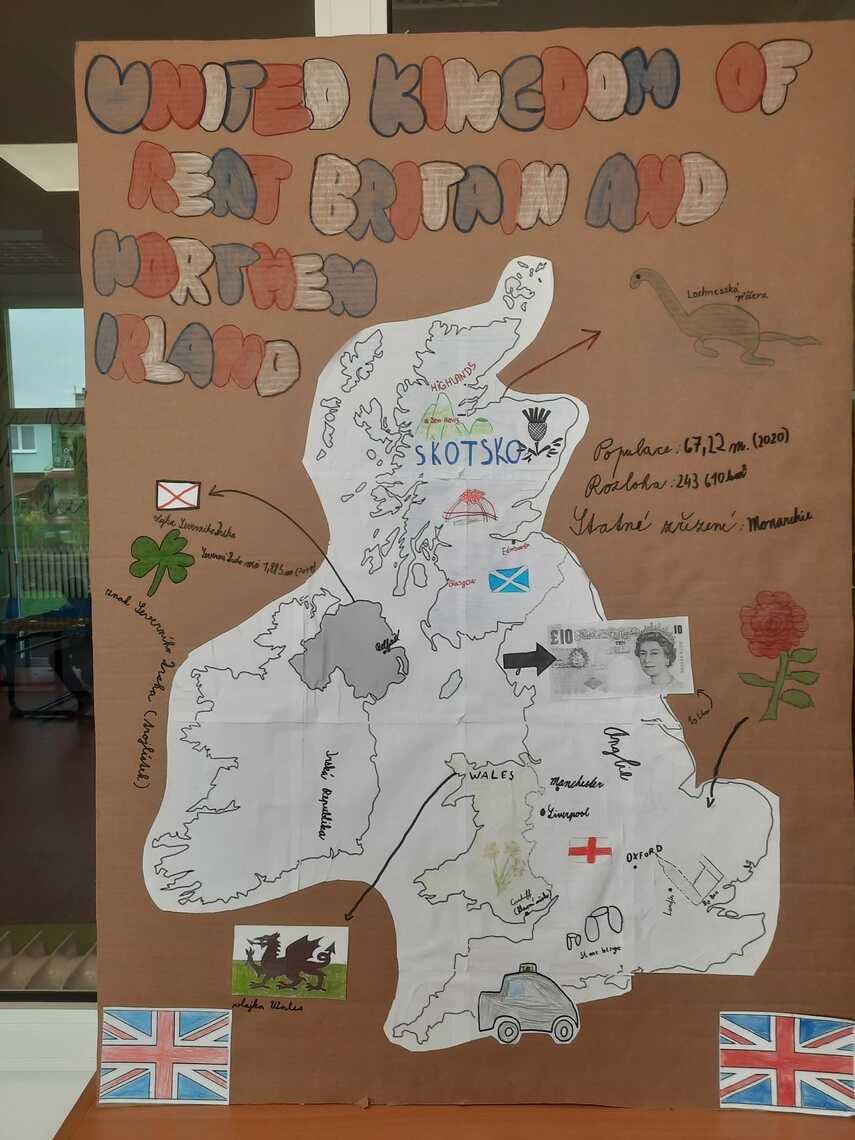 UNITED KINGDOM OF
REAT BRITAIN AND
NORTHEN
IRLAND
Lochnesská
příšera
HIGHLANDS
Ben Nevis
SKOTSKO
Populace: 67,22 m. (2020)
Rozloha: 243 610 km²
Státné zřízení: Monarchie
vlajka Severního Irska
Severní Irsko má 1,885 m
znak Severního Irska (trojlístek)
Edinburgh
Glasgow
£10
10
Belfast
Anglie
Irská Republika
WALES
Manchester
Liverpool
OXFORD
Cardiff
(hlavní město)
Stone henge
Big Ben
TAXI
vlajka Wales